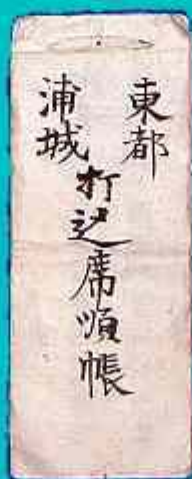 東都
浦城
打込席順帳